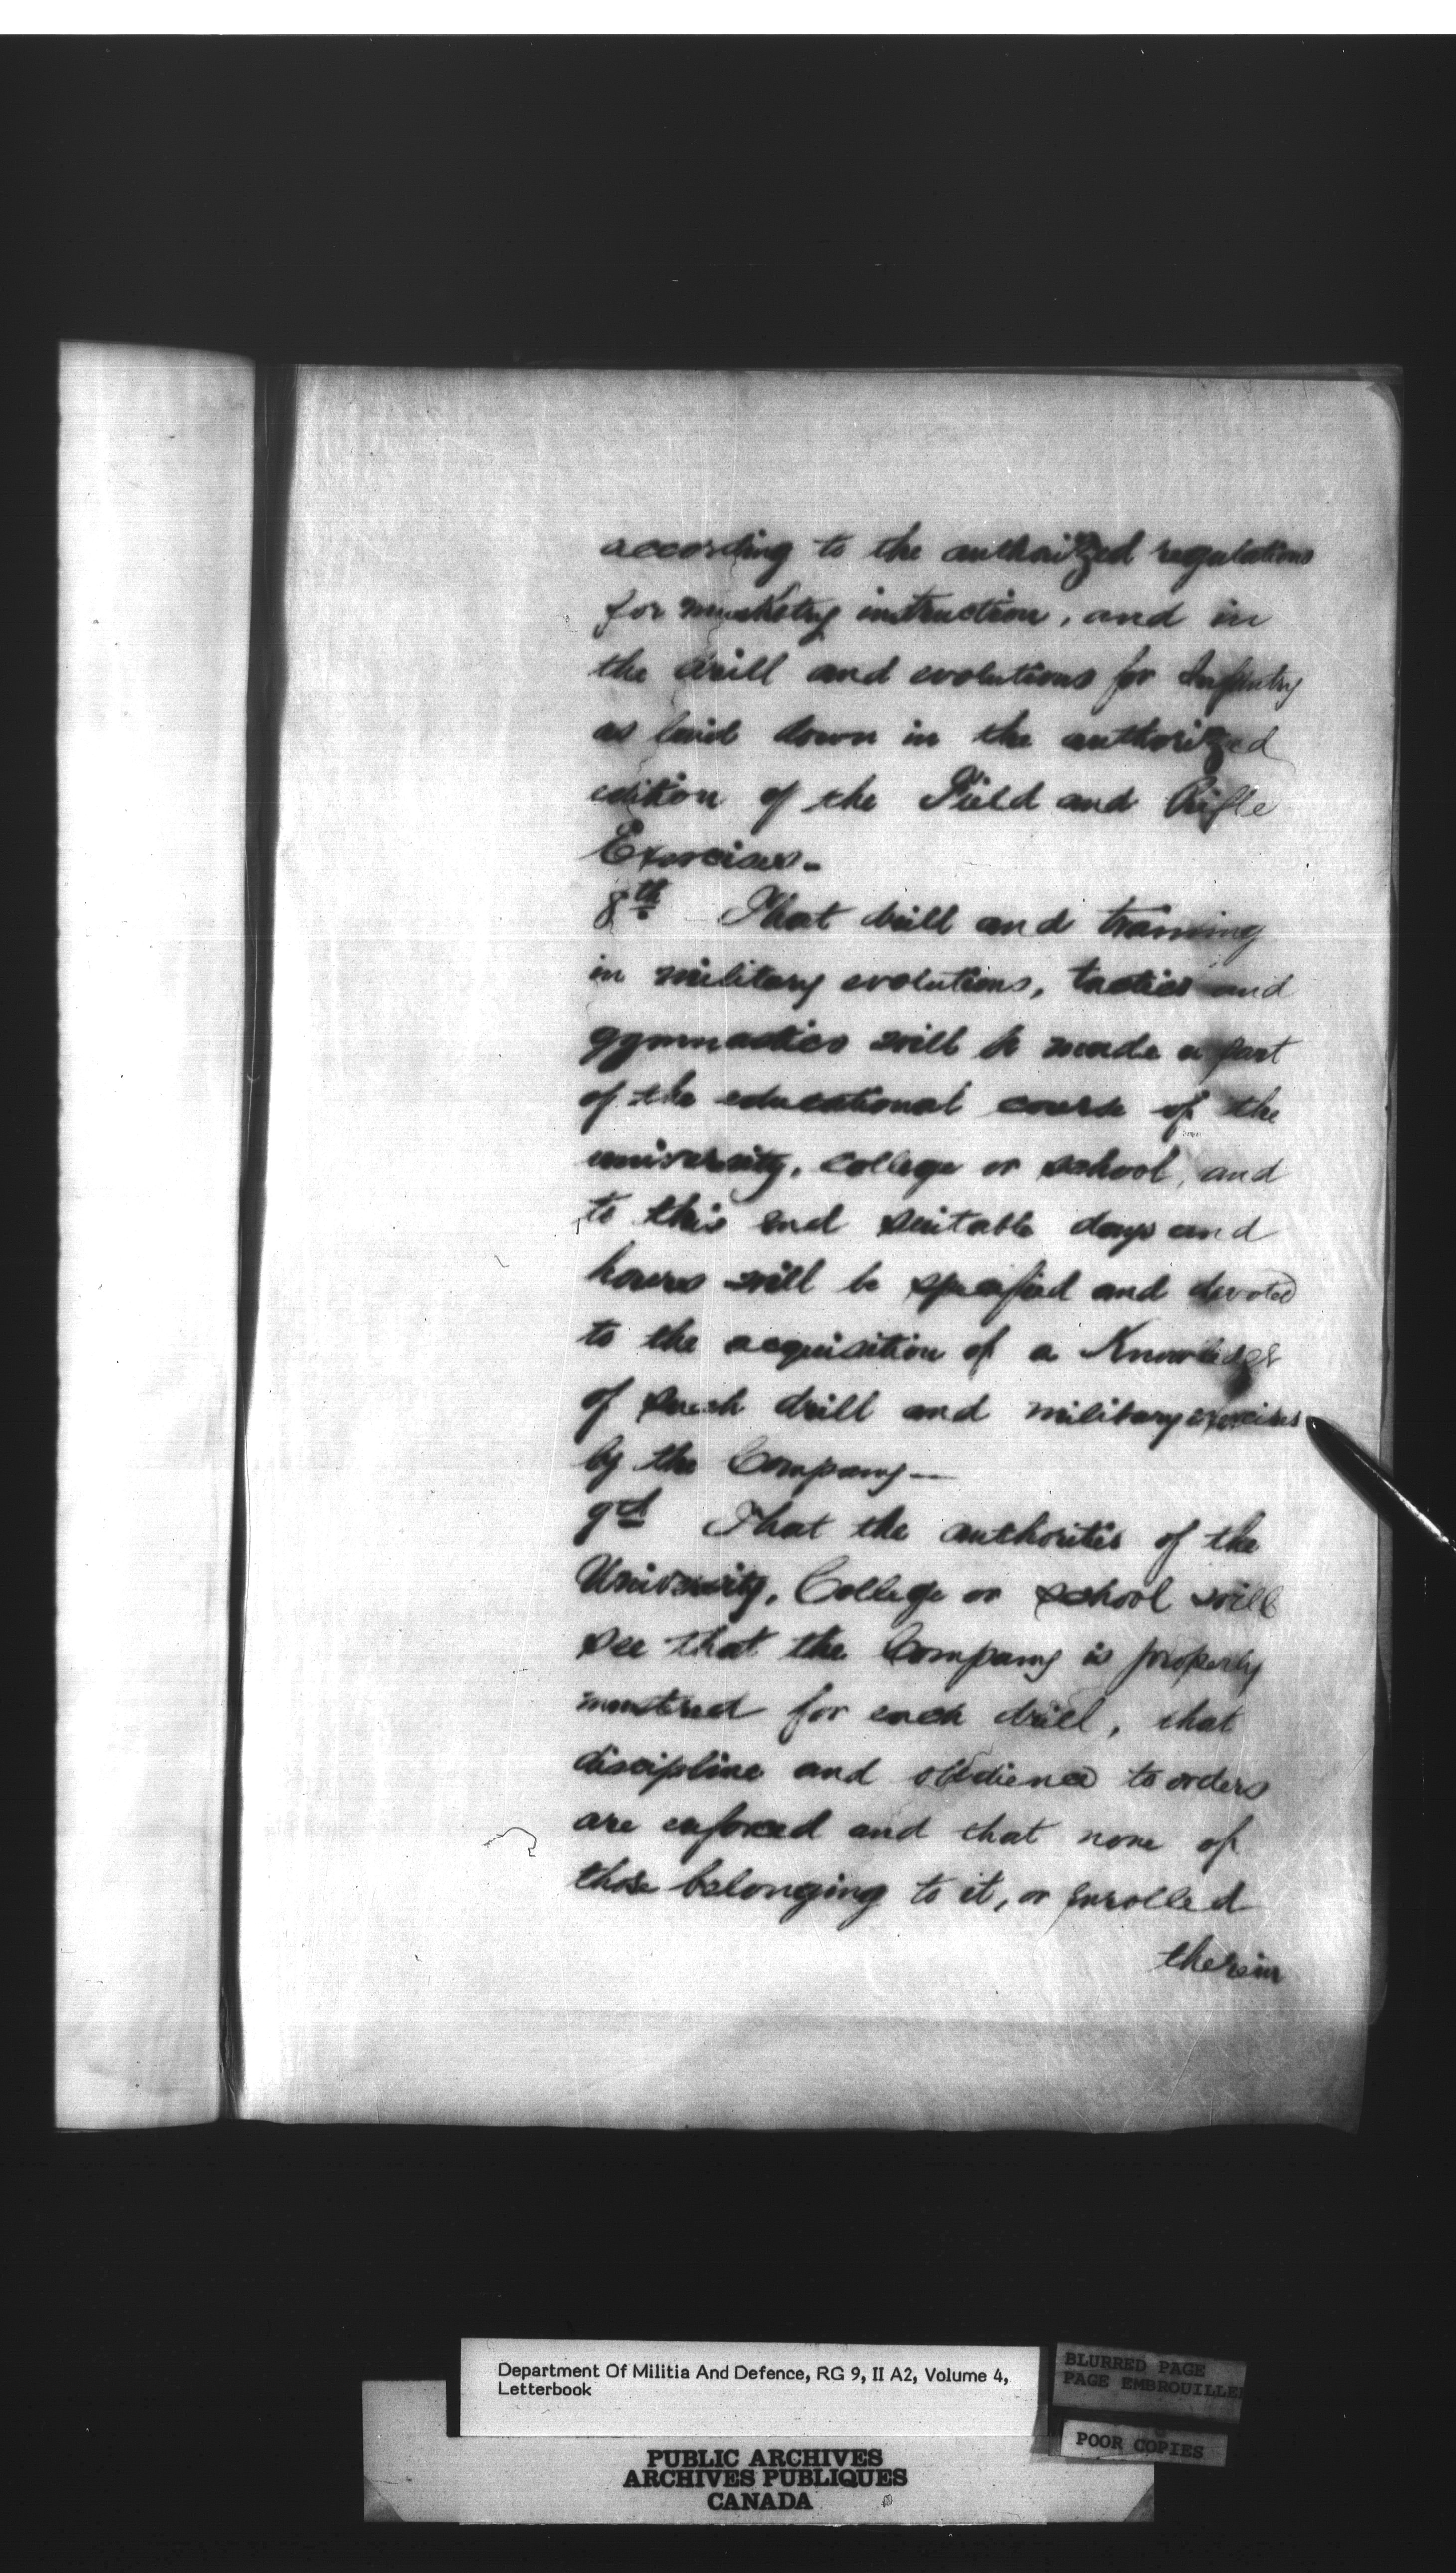 according to the authorized regulations
for musketry instruction, and in
the drill and evolutions for Infantry
as laid down in the authorized
edition of the Field and Rifle
Exercises.
8th That drill and training
in military evolutions, tactics and
gymnastics will be made a part
of the educational course of the
university, college or school, and
to this end suitable days and
hours will be specified and devoted
to the acquisition of a Knowledge
of such drill and military exercises
by the Company—
9th That the authorities of the
University, College or school will
see that the Company is properly
mustered for each drill, that
discipline and obedience to orders
are enforced and that none of
those belonging to it, or enrolled
therein
Department Of Militia And Defence, RG 9, II A2, Volume 4,
Letterbook
BLURRED PAGE
PAGE EMBROUILLEE
POOR COPIES
PUBLIC ARCHIVES
ARCHIVES PUBLIQUES
CANADA